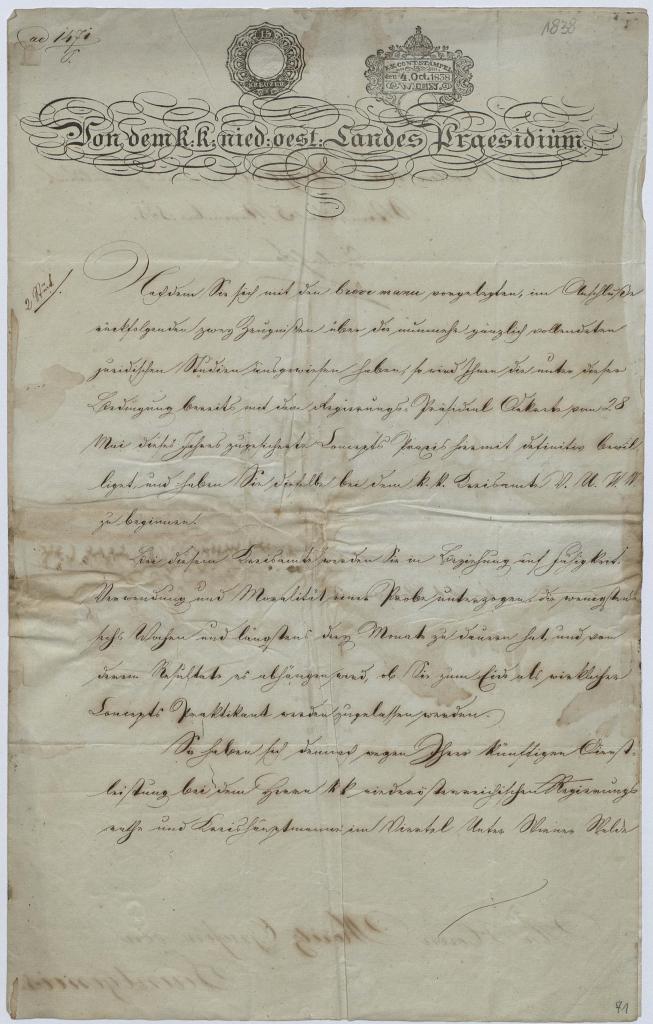 ad 1471
1838
15
KREUZER
K.K. CONT. STAMPEL
den 4. Oct. 1838
WIEN.
Von dem k: k: nied: oest: Landes Praesidium.
2 Stück
Nachdem Sie sich mit den brevi manu vorgelegten, im Anschluße
rückfolgenden zwey Zeugnißen über die nunmehr gänzlich vollendeten
juridischen Studien ausgewiesen haben, so wird Ihnen die unter dieser
Bedingung bereits mit dem Regierungs-Präsidial Dekrete vom 28
Mai dieses Jahres zugesicherte Concepts Praxis hiermit definitiv bewil
liget, und haben Sie dieselbe bei dem k. k. Kreisamte V. U. W. W.
zu beginnen.
Bei diesem Kreisamte werden Sie in Beziehung auf Fähigkeit,
Verwendung und Moralität einer Probe unterzogen, die wenigstens
sechs Wochen und längstens drey Monate zu dauern hat, und von
deren Resultate es abhängen wird, ob Sie zum Eide als wirklicher
Concepts Praktikant werden zugelassen werden.
Sie haben sich demnach wegen Ihrer künftigen Dienst-
leistung bei dem Herrn k k niederösterreichischen Regierungs
rathe und Kreishauptmanne im Viertel Unter Wiener Walde
71